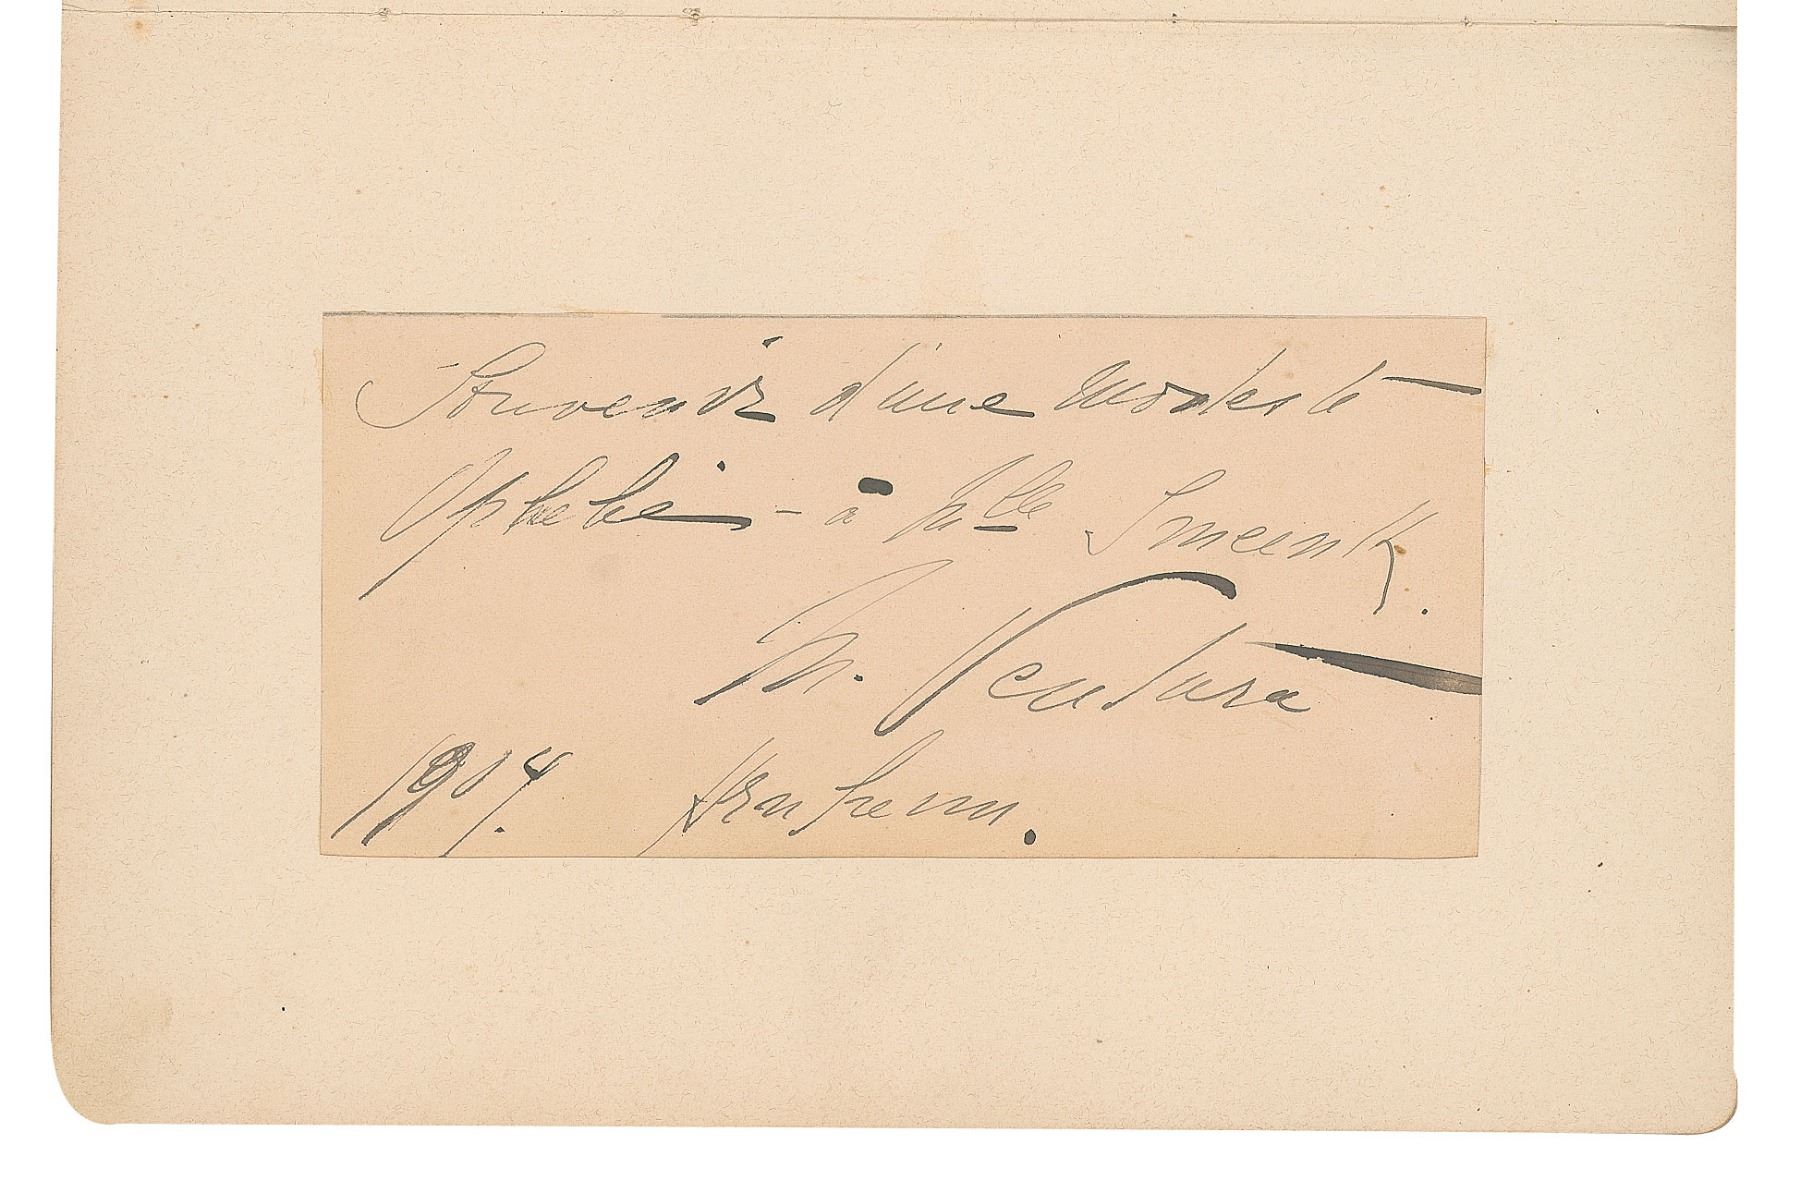 Souvenir d'une modeste
Ophelie - à Mlle Smeenk.
M. Ventura
1904. Arnhem.